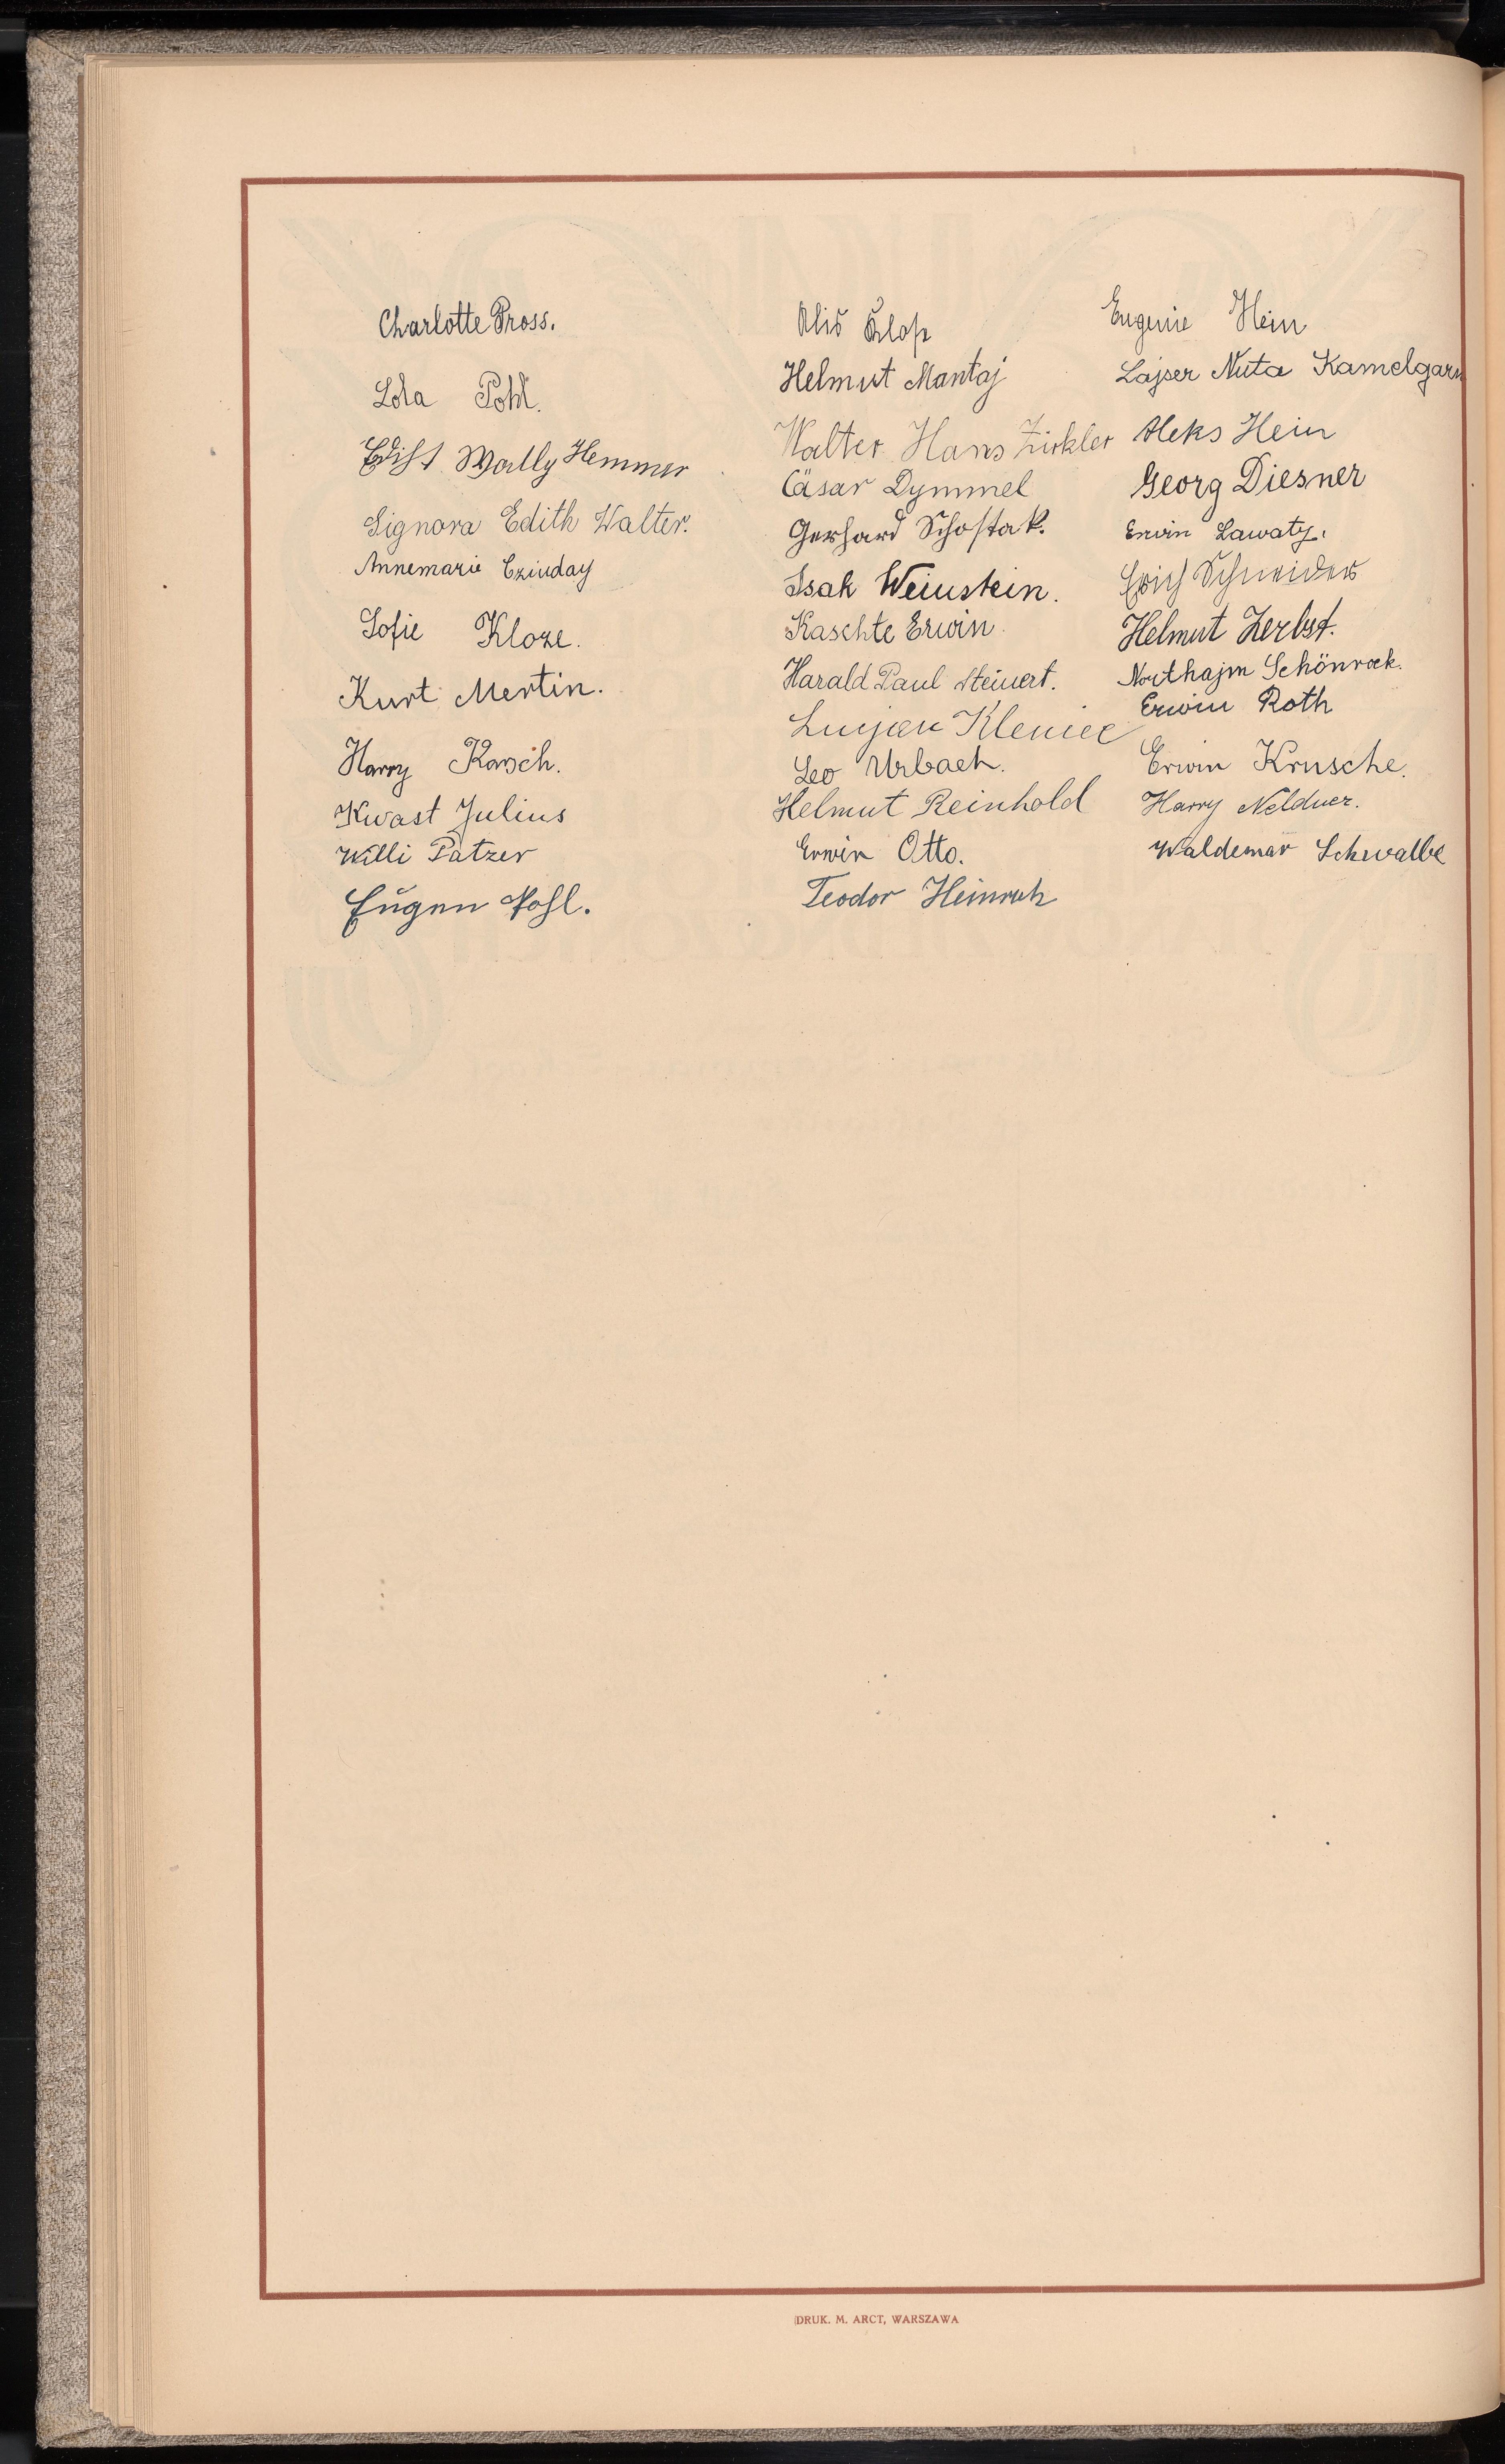 Charlotte Pross.
Lola Pohl.
Edith Wally Hemmer
Signora Edith Walter.
Annemarie
Sofie Kloze.
Kurt Mertin.
Harry
Kwast Julius
Willi Patzer
Eugen Pohl.
Helmut Mantaj
Walter Hans Zirkler
Cäsar Dymmel
Gerhard Schostak.
Isak Weinstein.
Raschte Erwin.
Harald Paul Steinert.
Lucjan Kleniec
Leo Urbach.
Helmut Reinhold
Erwin Otto.
Teodor Heinrich
Eugenie Hein
Lajser Nuta Kamelgarn
Aleks Hein
Georg Diesner
Erwin Lawaty.
Erich Schneider
Helmut Zerbst.
Schönrock.
Erwin Roth
Erwin Krusche.
Harry Nelduer.
Waldemar Schwalbe
DRUK. M. ARCT, WARSZAWA